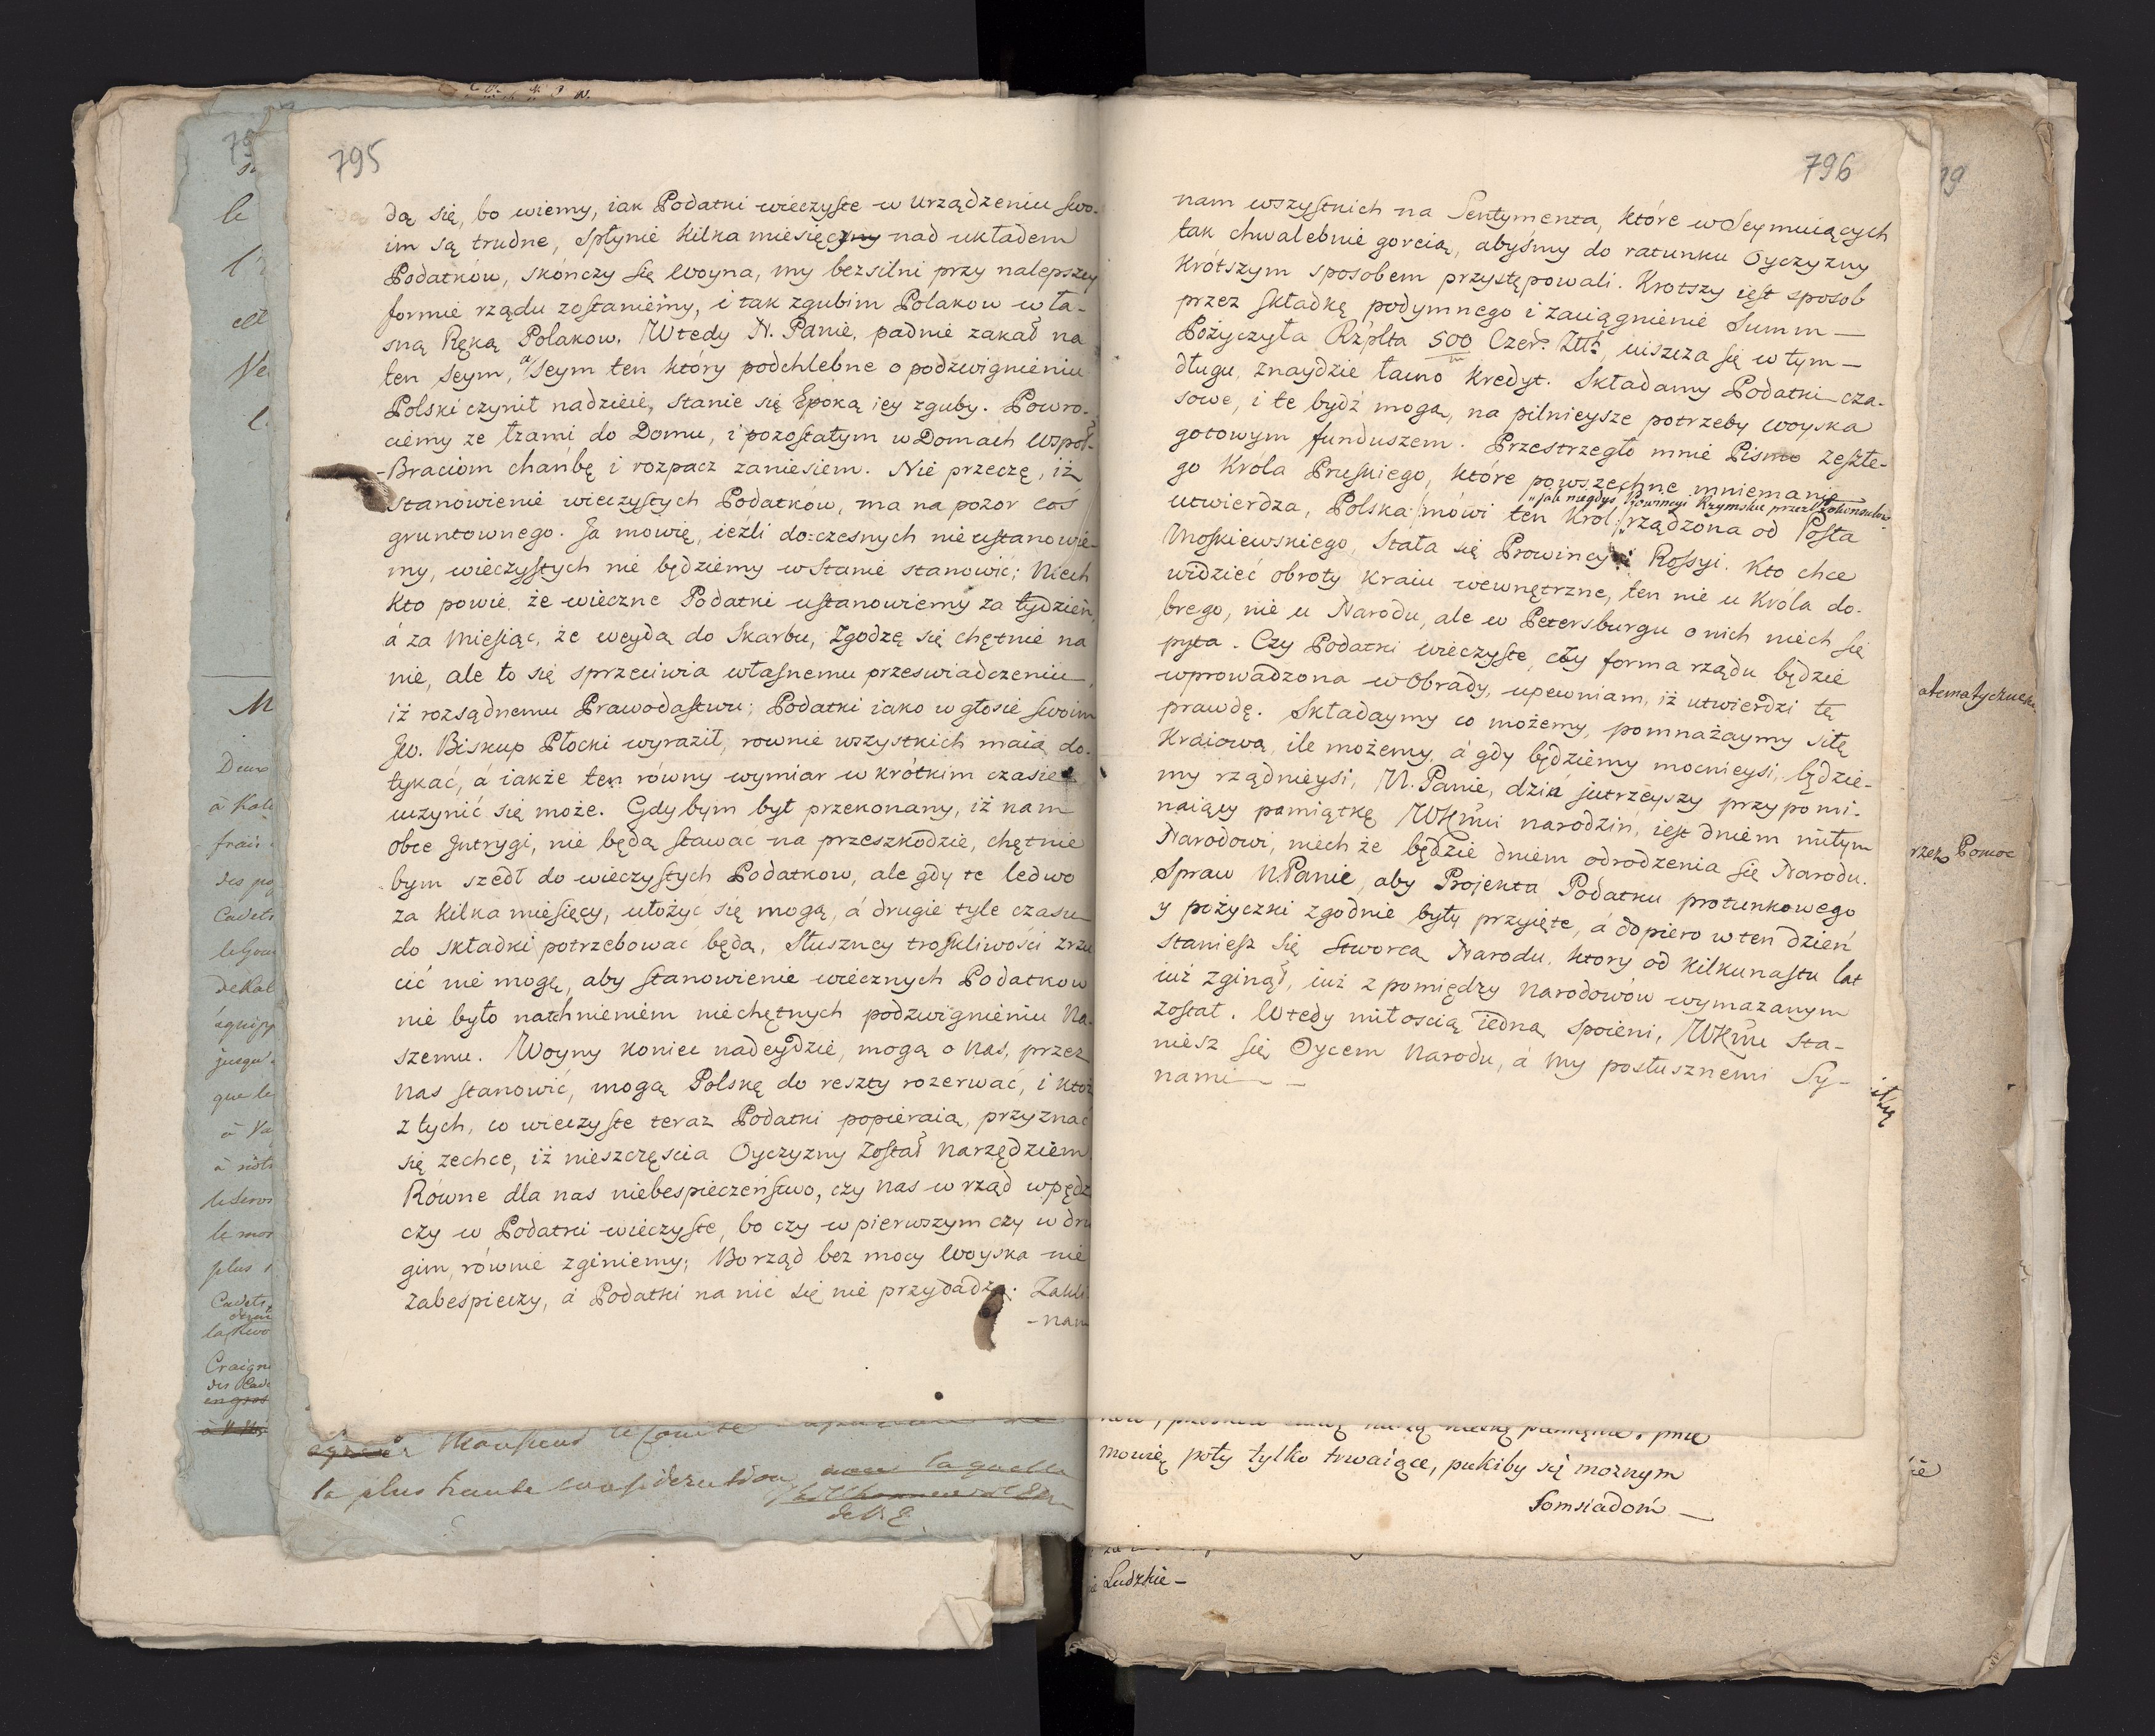 795
dą się, bo wiemy, iak Podatki wieczyste w urządzeniu swo-
im są trudne, spłynie kilka miesięcy nad układem
Podatków, skończy się Woyna, my bezsilni przy nalepszey
formie rządu zostaniemy, i tak zgubim Polakow wła-
sną Ręką Polakow. Wtedy N. Panie, padnie zakał na
ten Seym, a Seym ten który podchlebne o podzwignieniu
Polski czynił nadzieie, stanie się Epoką iey zguby. Powro-
ciemy ze łzami do Domu, i pozostałym w Domach Wspoł-
-Braciom chańbę i rozpacz zaniesiem. Nie przeczę, iż
stanowienie wieczystych Podatków, ma na pozor coś
gruntownego. Ja mowię, ieźli do-czesnych nie ustanowie-
my, wieczystych nie będziemy w stanie stanowić; Niech
kto powie, że wieczne Podatki ustanowiemy za tydzień,
á za Miesiąc, że weydą do Skarbu, Zgodzę się chętnie na
nie, ale to się sprzeciwia własnemu przeswiadczeniu,
iż rozsądnemu Prawodastwu; Podatki iako w głosie swoim
Jw. Biskup Płocki wyraził, rownie wszystkich maią do-
tykać, á iakże ten równy wymiar w krótkim czasie
uczynić się może. Gdybym był przekonany, iż nam
obce Jntrygi, nie będą stawać na przeszkodzie, chętnie
bym szedł do wieczystych Podatkow, ale gdy te ledwo
za kilka miesięcy, ułożyć się mogą, á drugie tyle czasu
do składki potrzebować będą, Słuszney troskliwości zrzu
cić nie mogę, aby stanowienie wiecznych Podatkow
nie było natchnieniem niechętnych podzwignieniu Na-
szemu. Woyny koniec nadeydzie, mogą o Nas, przez
Nas stanowić, mogą Polskę do reszty rozerwać, i ktoż
z tych, co wieczyste teraz Podatki popieraią, przyznać
się zechce, iż nieszczęscia Oyczyzny został Narzędziem.
Równe dla nas niebespieczeństwo, czy Nas w rząd wpędz
czy w Podatki wieczyste, bo czy w pierwszym czy w dru
gim, równie zginiemy; Bo rząd bez mocy Woyska nie
zabespieczy, á Podatki na nic się nie przydadzą. Zakli
-nam
796
nam wszystkich na Sentymenta, które w Seymuiących
tak chwalebnie gorcią, abyśmy do ratunku Oyczyzny
krótszym sposobem przystępowali. Krotszy iest sposob
przez składkę podymnego i zaciągnienie Summ—
Pożyczyła Rzplta 500 Czer. Złł, uiszcza się w tym—
długu, znaydzie łatwo kredyt. Składamy Podatki cza-
sowe, i te bydź mogą, na pilnieysze potrzeby woyska
gotowym funduszem. Przestrzegło mnie Pismo zeszłe-
go Króla Pruskiego, które powszechne mniemanie
utwierdza, Polska /mówi ten Krol/ rządzona od Posła
Moskiewskiego, Stała się Prowincyi Rossyi. Kto chce
widzieć obroty kraiu wewnętrzne, ten nie u Krola do-
brego, nie u Narodu, ale w Petersburgu o nich niech się
pyta. Czy Podatki wieczyste, czy forma rządu będzie
wprowadzona w Obrady, upewniam, iż utwierdzi tę
prawdę. Składaymy co możemy, pomnażaymy siłę
Kraiową, ile możemy, á gdy będziemy mocnieysi, będzie-
my rządnieysi, N. Panie, dzień jutrzeyszy przypomi-
naiący pamiątkę WKMci narodzin, iest dniem miłym
Narodowi, niech że będzie dniem odrodzenia się Narodu.
Spraw N. Panie, aby Projekta Podatku protunkowego
y pożyczki zgodnie były przyięte, á dopiero w ten dzień
staniesz się Stworcą Narodu, ktory od kilkunastu lat
iuż zginął, iuż z pomiędzy Narodowów wymazanym
został. Wtedy miłoscią iedną spoieni, WKMć sta-
niesz się Oycem Narodu, á My posłusznemi Sy-
nami—
mowię poty tylko trwaiące, pukiby się możnym
Somsiadom—
Ludzkie—
rzez Pomoc
la plus haute consideration